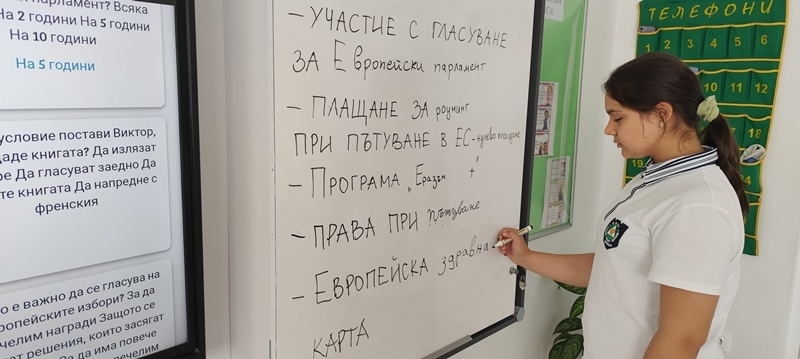 парламент? Всяка
На 2 години На 5 години
На 10 години
На 5 години
условие постави Виктор,
книгата? Да излязат
Да гласуват заедно Да
книгата Да напредне с
френския
е важно да се гласува на
избори? За да
спечелим награди Защото се
решения, които засягат
За да има повече
– УЧАСТИЕ С ГЛАСУВАНЕ
ЗА Европейски парламент
– ПЛАЩАНЕ ЗА роуминг
ПРИ ПЪТУВАНЕ В ЕС-нулево плащане
– ПРОГРАМА „Еразъм +"
– ПРАВА ПРИ пътуване
– ЕВРОПЕЙСКА здравна
КАРТА
ТЕЛЕФОНИ
1 2 3 4 5 6
10 11 12
17 18
19